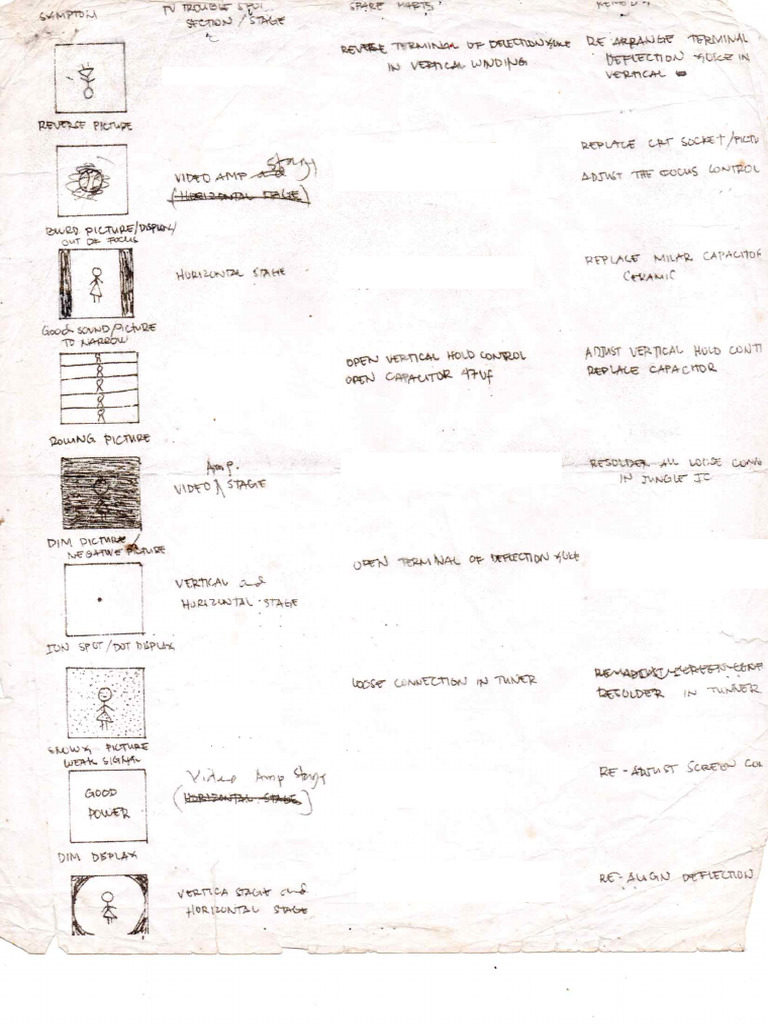 SYMPTOM
TV TROUBLE SPOT
SECTION / STAGE
SPARE PARTS
REVERSE PICTURE
REVERSE TERMINAL OF DEFLECTION YOKE
IN VERTICAL WINDING
RE ARRANGE TERMINAL
DEFLECTION YOKE IN
VERTICAL
BLURD PICTURE/DISPLAY/
OUT OF FOCUS
VIDEO AMP and Stage
(HORIZONTAL STAGE)
REPLACE CRT SOCKET/PICTU
ADJUST THE FOCUS CONTROL
GOOD SOUND/PICTURE
TO NARROW
HORIZONTAL STAGE
REPLACE MILAR CAPACITOR
CERAMIC
ROLLING PICTURE
OPEN VERTICAL HOLD CONTROL
OPEN CAPACITOR 47Uf
ADJUST VERTICAL HOLD CONT
REPLACE CAPACITOR
DIM PICTURE
NEGATIVE PICTURE
Amp.
VIDEO STAGE
RESOLDER ALL LOOSE CONN
IN JUNGLE IC
ION SPOT/DOT DISPLAY
VERTICAL and
HORIZONTAL STAGE
OPEN TERMINAL OF DEFLECTION YOKE
SNOWY PICTURE
WEAK SIGNAL
LOOSE CONNECTION IN TUNER
RESOLDER IN TUNNER
GOOD
POWER
DIM DISPLAY
Video Amp Stage
(HORIZONTAL STAGE)
RE-ADJUST SCREEN CO
VERTICA STAGE and
HORIZONTAL STAGE
RE-ALIGN DEFLECTION